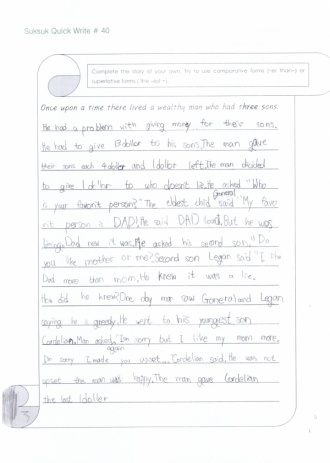 Suksuk Quick Write # 40
Complete the story of your own. Try to use comparative forms (-er than~) or
superlative forms ( the -est ~)
Once upon a time there lived a wealthy man who had three sons.
He had a problem with giving money for their sons.
He had to give 13 dollor to his sons. The man gave
their sons each 4 doller and 1 dolor left. The man decided
to give 1 do'lar to who doesn't lie. He asked "Who
is your favorit person?" The eldest child Goneral said "My favo
rit person is DAD!" He said DAD loud. But he was
lieing. Dad now it was. He asked his second son. "Do
you like mother or me? Second son Legan said "I like
Dad more than mom. He knew it was a lie.
How did he knew? One day man saw Goneral and Legan
saying he is greedy. He went to his youngest son
Cordelian. Man asked again. "I'm sorry but I like my mom more.
I'm sorry I made you upset... Cordelian said. He was not
upset the man was happy. The man gave Cordelian
the last 1 doller